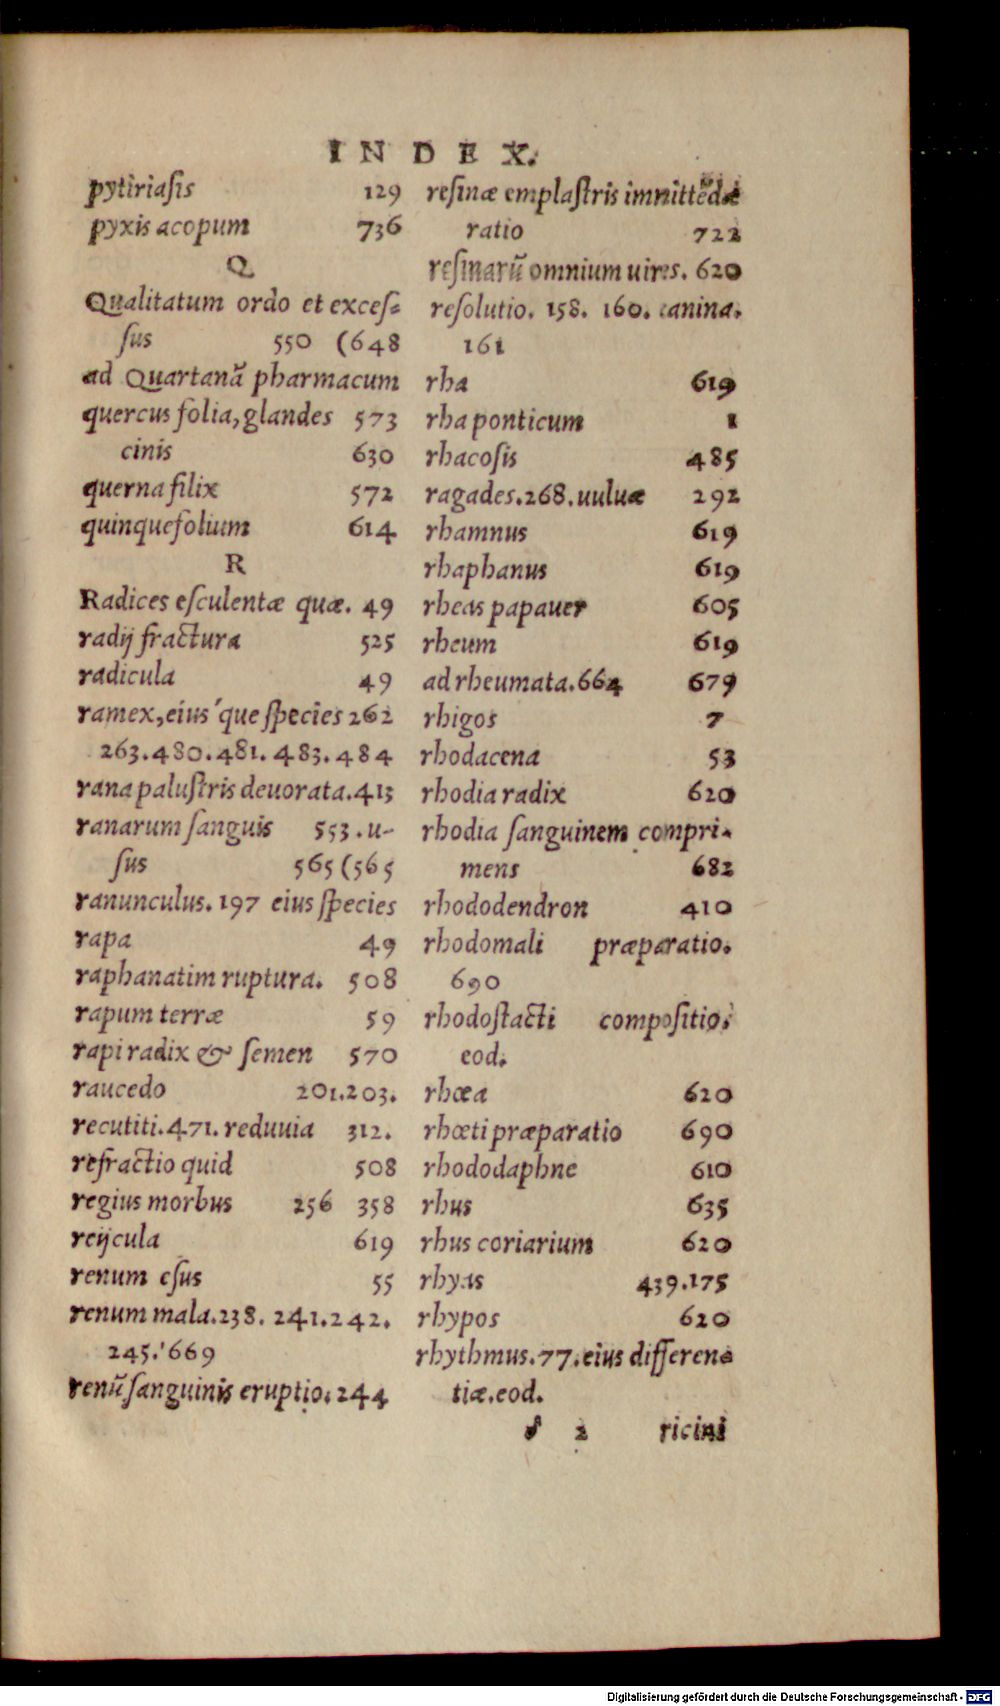 INDEX.
pytiriasis 129
pyxis acopum 736
Q
Qualitatum ordo et exces=
sus 550 (648
ad Quartanā pharmacum
quercus folia, glandes 573
cinis 630
querna filix 572
quinquefolium 614
R
Radices esculentæ quæ. 49
radij fractura 525
radicula 49
ramex, eius´que species 262
263.480.481.483.484
rana palustris deuorata.413
ranarum sanguis 553.u-
sus 565 (565
ranunculus.197 eius species
rapa 49
raphanatim ruptura. 508
rapum terræ 59
rapi radix & semen 570
raucedo 201.203.
recutiti.471. reduuia 312.
refractio quid 508
regius morbus 256 358
reijcula 619
renum esus 55
renum mala.238. 241.242.
245.'669
renū sanguinis eruptio.244
resinæ emplastris imnittēdæ
ratio 722
resinarū omnium uires. 620
resolutio. 158. 160. canina.
161
rha 619
rha ponticum 1
rhacosis 485
ragades.268.uuluæ 292
rhamnus 619
rhaphanus 619
rheas papauer 605
rheum 619
ad rheumata.664 679
rhigos 7
rhodacena 53
rhodia radix 620
rhodia sanguinem compri-
mens 682
rhododendron 410
rhodomali præparatio.
690
rhodostacti compositio.
eod.
rhœa 620
rhœti præparatio 690
rhododaphne 610
rhus 635
rhus coriarium 620
rhyas 439.175
rhypos 620
rhythmus.77.eius differen=
tiæ.eod.
s 2 ricini
Digitalisierung gefördert durch die Deutsche Forschungsgemeinschaft - DFG